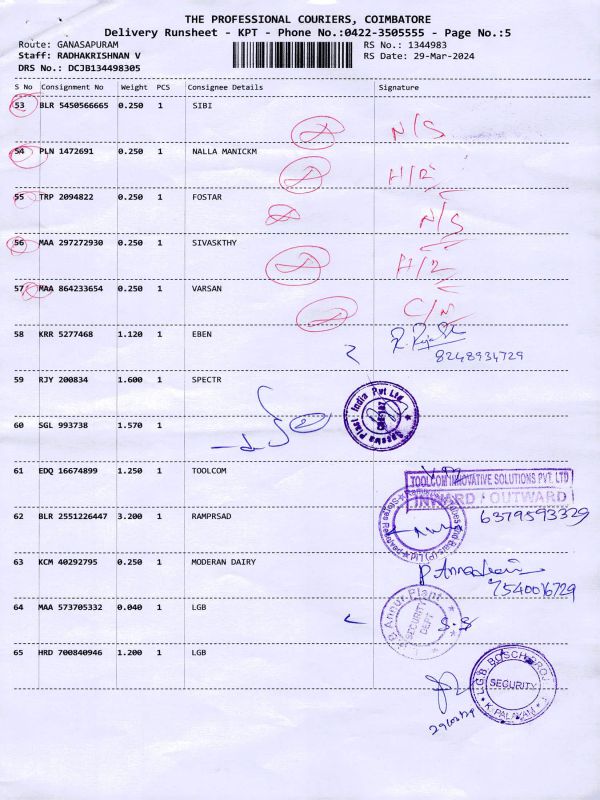 THE PROFESSIONAL COURIERS, COIMBATORE
Delivery Runsheet - KPT - Phone No.:0422-3505555 - Page No.:5
Route: GANASAPURAM RS No.: 1344983
Staff: RADHAKRISHNAN V RS Date: 29-Mar-2024
DRS No.: DCJB134498305
S No Consignment No Weight PCS Consignee Details Signature
53 BLR 5450566665 0.250 1 SIBI
N/S
54 PLN 1472691 0.250 1 NALLA MANICKM
55 TRP 2094822 0.250 1 FOSTAR
N/S
56 MAA 297272930 0.250 1 SIVASKTHY
57 MAA 864233654 0.250 1 VARSAN
58 KRR 5277468 1.120 1 EBEN
8248934729
59 RJY 200834 1.600 1 SPECTR
India Pvt Ltd
60 SGL 993738 1.570 1
61 EDQ 16674899 1.250 1 TOOLCOM
TOOLCOM INNOVATIVE SOLUTIONS PVT. LTD
INWARD / OUTWARD
62 BLR 2551226447 3.200 1 RAMPRSAD
6379593329
63 KCM 40292795 0.250 1 MODERAN DAIRY
7540016729
64 MAA 573705332 0.040 1 LGB
Annur Plant
SECURITY DEPT
S.S
65 HRD 700840946 1.200 1 LGB
L.G.B BOSCH PROJ
SECURITY
K. PALAYAM